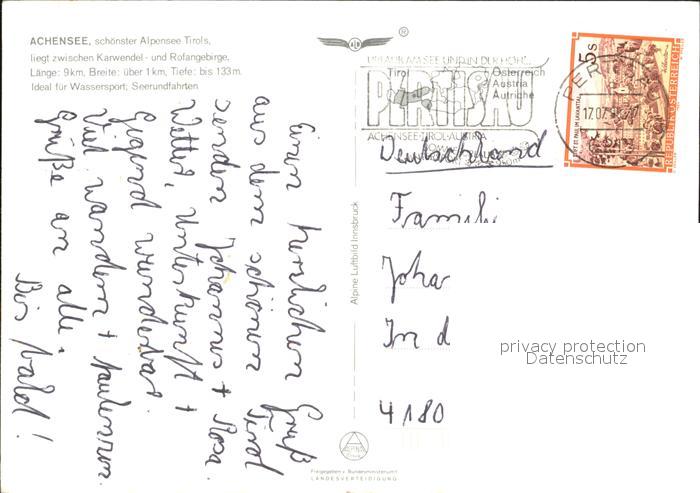 ACHENSEE, schönster Alpensee Tirols,
liegt zwischen Karwendel- und Rofangebirge,
Länge: 9 km, Breite: über 1 km, Tiefe: bis 133 m.
Ideal für Wassersport; Seerundfahrten
Einen herzlichen Gruß
aus dem schönen Tirol
senden Johannes + Rosa.
Wetter, Unterkunft +
Gegend wunderbar.
Viel wandern +
Grüße an alle.
Bis bald!
Alpine Luftbild Innsbruck
ALPINE
Freigegeben v. Bundesministerium f.
LANDESVERTEIDIGUNG
®
URLAUB AM SEE UND IN DER HÖH'...
Tirol
Österreich
Austria
Autriche
PERTISAU
ACHENSEE-TIROL-AUSTRIA
PER
17.07.
5 S
STIFT ST. PAUL IM LAVANTTAL
REPUBLIK ÖSTERREICH
Deutschland
Famili
Joha
In d
4180
privacy protection
Datenschutz